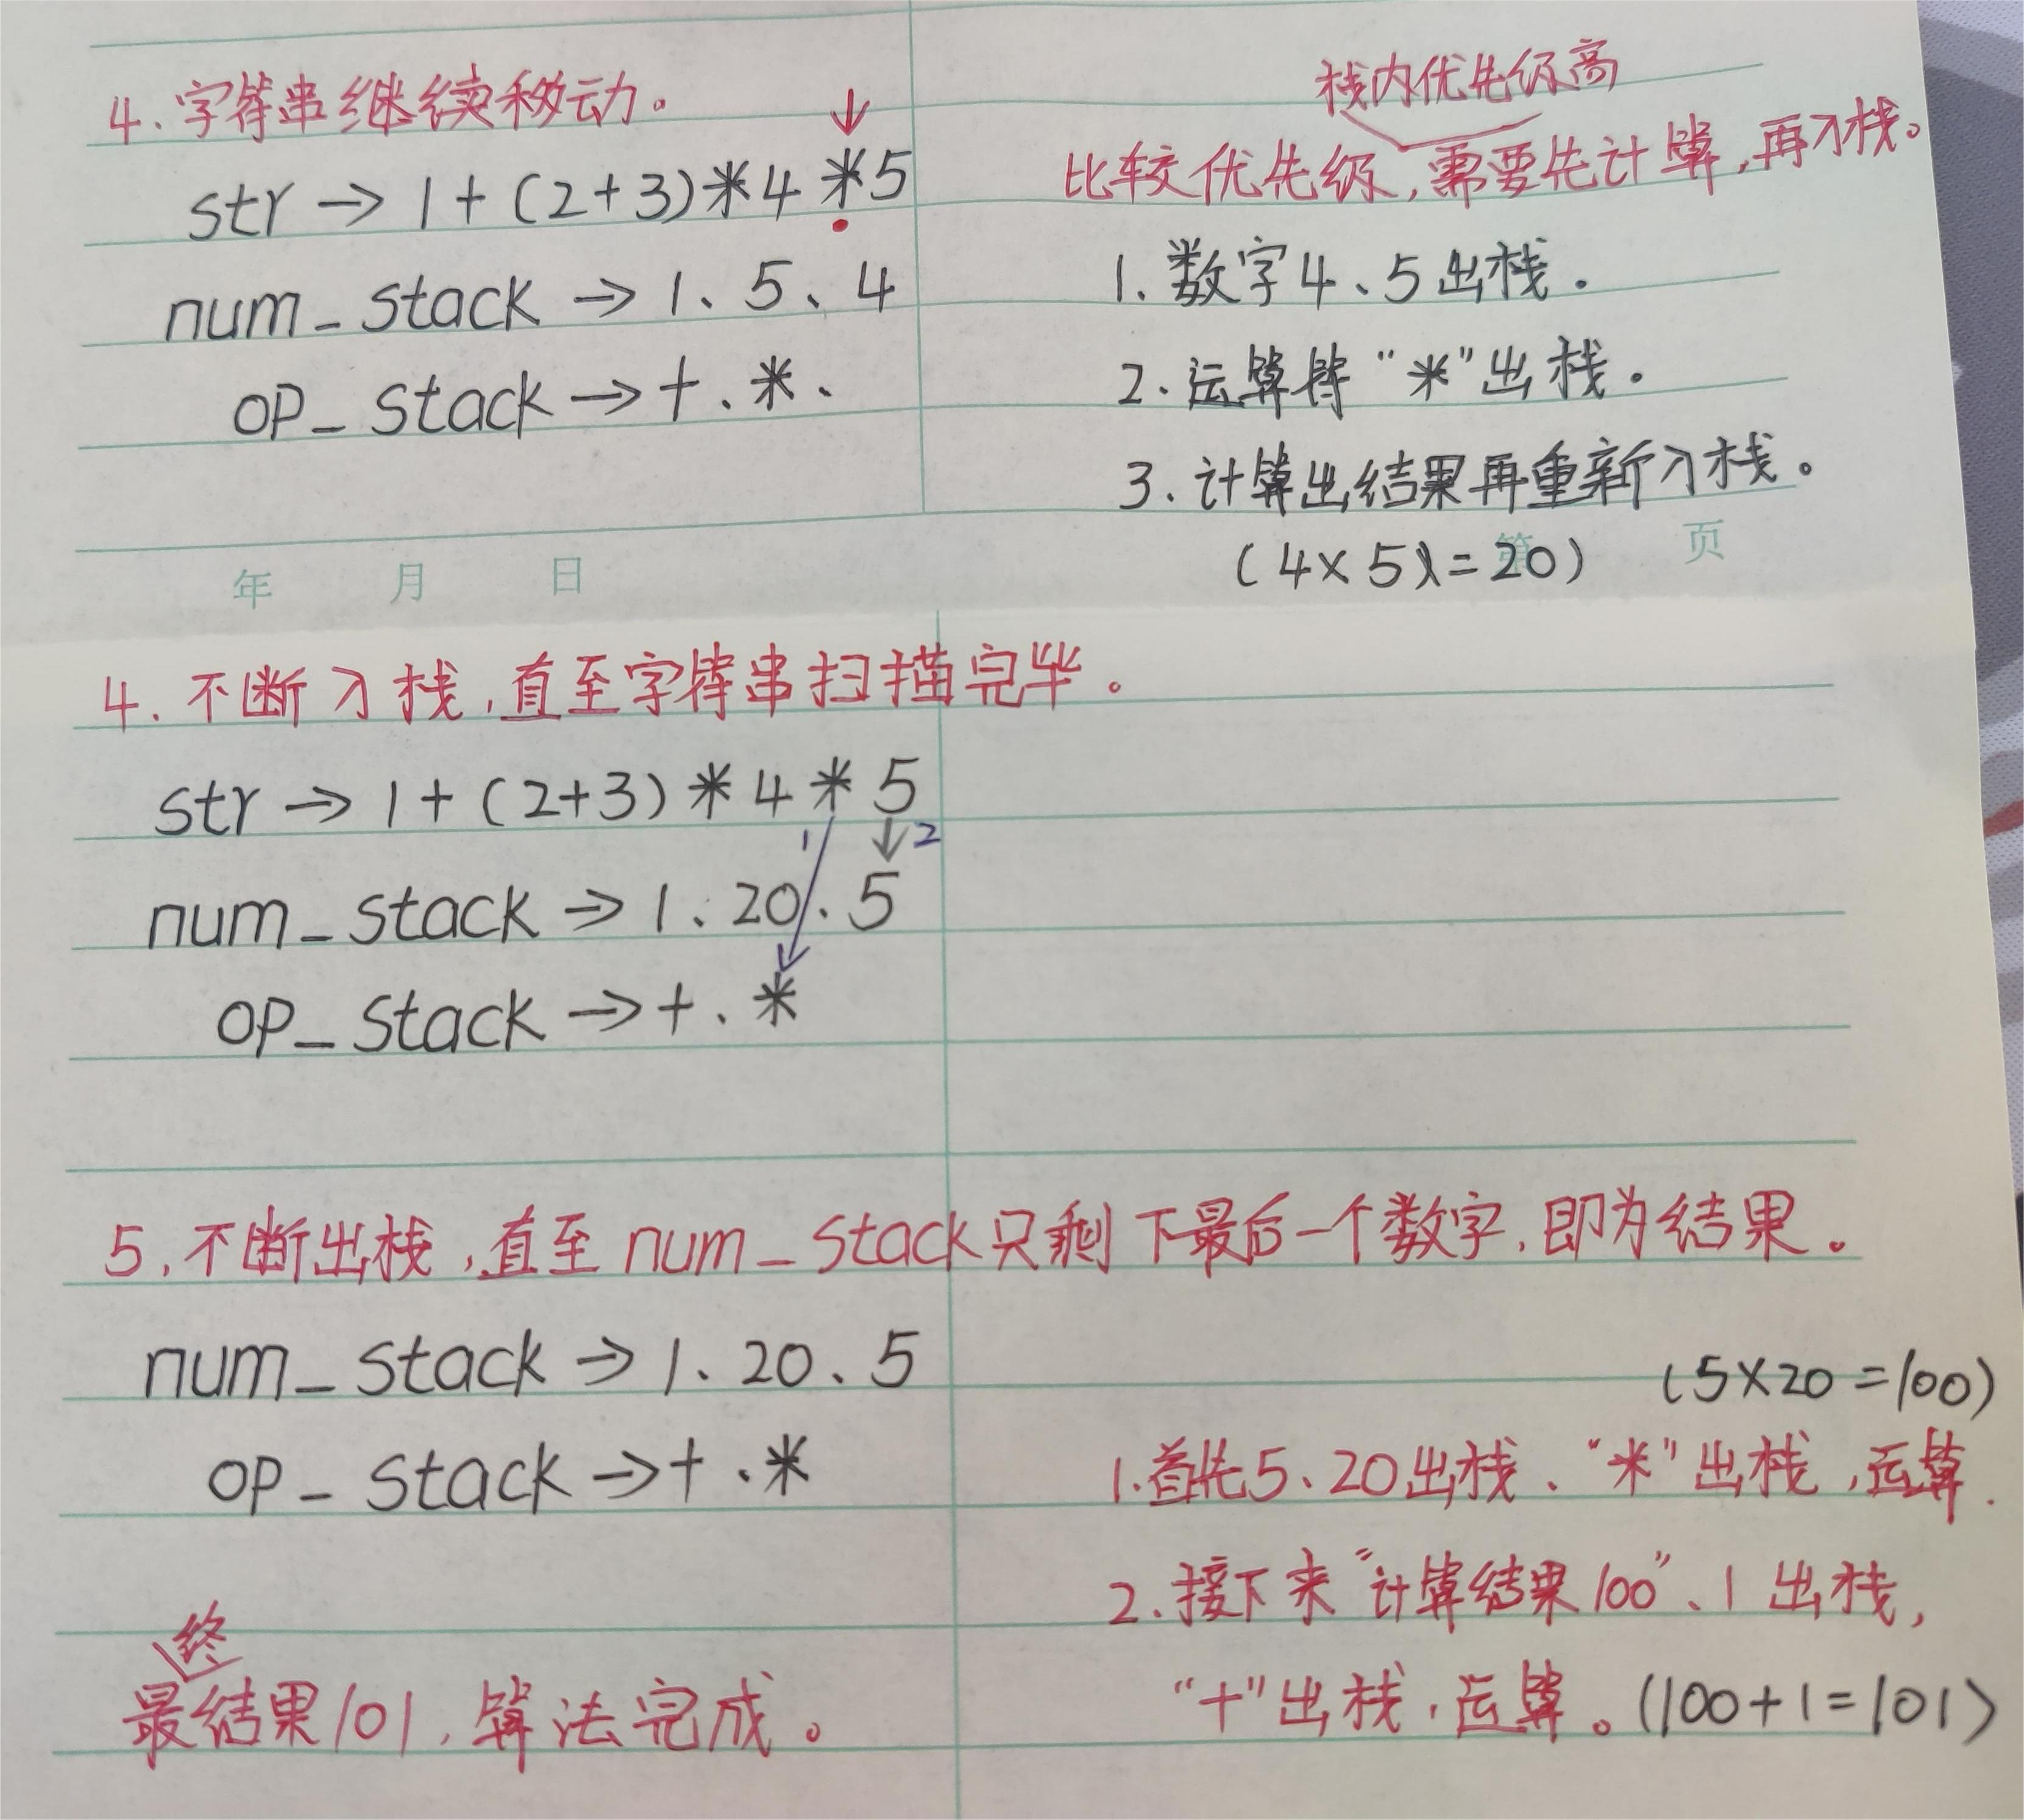 4、字符串继续移动。
str → 1+(2+3)*4*5
num_stack → 1、5、4
op_stack → +、*、
栈内优先级高
比较优先级,需要先计算,再入栈。
1、数字4、5出栈.
2、运算符“*”出栈.
3、计算出结果再重新入栈。
(4×5)=20)
年 月 日
第 页
4、不断入栈,直至字符串扫描完毕。
str → 1+(2+3)*4*5
1 2
num_stack → 1、20、5
op_stack → +、*
5、不断出栈,直至num_stack只剩下最后一个数字,即为结果。
num_stack → 1、20、5
op_stack → +、*
(5×20=100)
1.首先5、20出栈、“*”出栈,运算.
2.接下来“计算结果100”、1出栈,
“+”出栈,运算。(100+1=101)
最终结果101,算法完成。